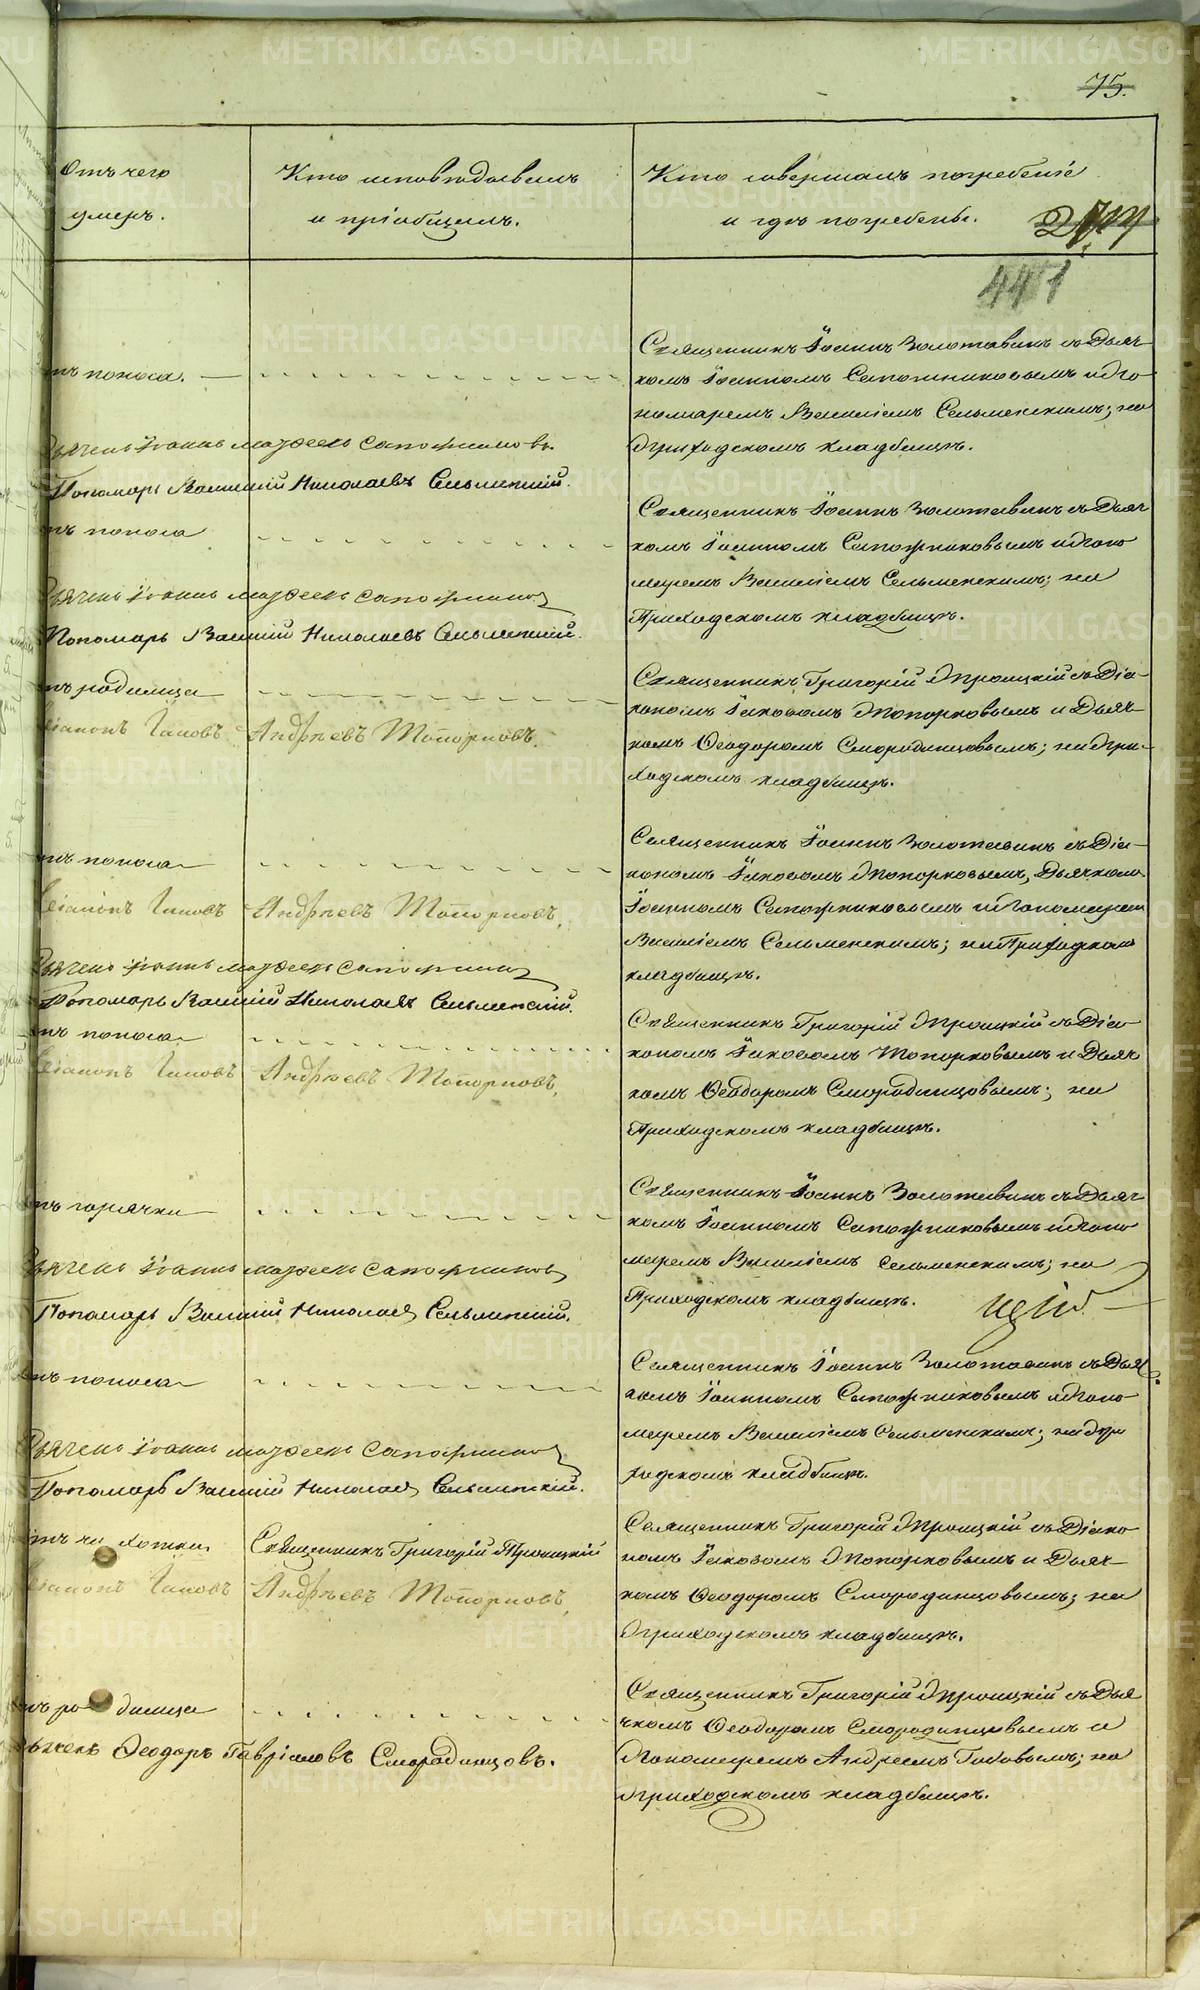 75.
Отъ чего умеръ.
Кто исповѣдовалъ и пріобщалъ.
Кто совершалъ погребеніе и гдѣ погребены.
441
отъ поноса.
Священникъ Іоаннъ Золотавинъ съ Дьяч-
комъ Іоанномъ Сапожниковымъ и По
номаремъ Василіемъ Сельменскимъ; на
Приходскомъ кладбищѣ.
Дьячекъ Іоаннъ Матфеевъ Сапожниковъ.
Пономарь Василій Николаевъ Сельменскій.
отъ поноса
Священникъ Іоаннъ Золотавинъ съ Дьяч
комъ Іоанномъ Сапожниковымъ и Поно
маремъ Василіемъ Сельменскимъ; на
Приходскомъ кладбищѣ.
Дьячекъ Іоаннъ Матфеевъ Сапожниковъ
Пономарь Василій Николаевъ Сельменскій.
отъ родимца
Священникъ Григорій Троицкій съ Діа-
кономъ Іаковомъ Топорковымъ и Дьяч-
комъ Ѳеодоромъ Смородинцовымъ; на При-
ходскомъ кладбищѣ.
Діаконъ Іаковъ Андреевъ Топорковъ.
отъ поноса
Священникъ Іоаннъ Золотавинъ съ Діа-
кономъ Іаковомъ Топорковымъ, Дьячкомъ
Іоанномъ Сапожниковымъ и Пономаремъ
Василіемъ Сельменскимъ; на Приходскомъ
кладбищѣ.
Діаконъ Іаковъ Андреевъ Топорковъ.
Дьячекъ Іоаннъ Матфеевъ Сапожниковъ
Пономарь Василій Николаевъ Сельменскій.
отъ поноса
Священникъ Григорій Троицкій съ Діа
кономъ Іаковомъ Топорковымъ и Дьяч
комъ Ѳеодоромъ Смородинцовымъ; на
Приходскомъ кладбищѣ.
Діаконъ Іаковъ Андреевъ Топорковъ.
отъ горячки
Священникъ Іоаннъ Золотавинъ съ Дьяч
комъ Іоанномъ Сапожниковымъ и Поно
маремъ Василіемъ Сельменскимъ; на
Приходскомъ кладбищѣ.
Дьячекъ Іоаннъ Матфеевъ Сапожниковъ
Пономарь Василій Николаевъ Сельменскій.
отъ поноса
Священникъ Іоаннъ Золотавинъ съ Дья
комъ Іоанномъ Сапожниковымъ и Поно
маремъ Василіемъ Сельменскимъ; на При
ходскомъ кладбищѣ.
Дьячекъ Іоаннъ Матфеевъ Сапожниковъ
Пономарь Василій Николаевъ Сельменскій.
отъ чахотки
Священникъ Григорій Троицкій
Священникъ Григорій Троицкій съ Діако
номъ Іаковомъ Топорковымъ и Дьяч-
комъ Ѳеодоромъ Смородинцовымъ; на
Приходскомъ кладбищѣ.
Діаконъ Іаковъ Андреевъ Топорковъ.
отъ родимца
Священникъ Григорій Троицкій съ Дья
чкомъ Ѳеодоромъ Смородинцовымъ и
Пономаремъ Андреемъ Габовымъ; на
Приходскомъ кладбищѣ.
Дьячекъ Ѳеодоръ Гавріиловъ Смородинцовъ.
METRIKI.GASO-URAL.RU